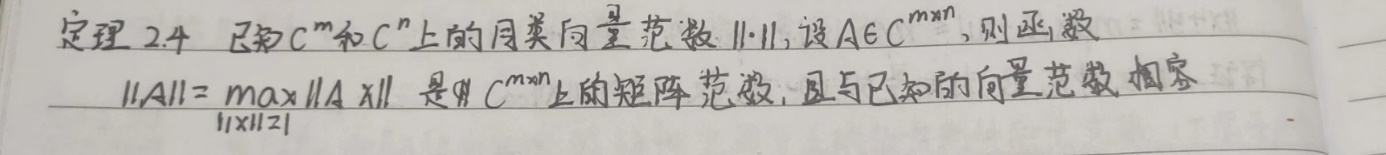 定理 2.4 已知 C^m 和 C^n 上的同类向量范数 ||·||, 设 A∈C^{m×n}, 则函数
||A|| = max_{||x||=1} ||A x|| 是 C^{m×n} 上的矩阵范数, 且与已知的向量范数相容